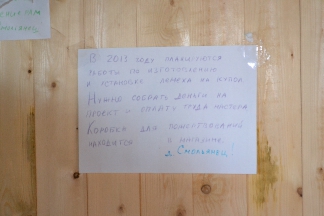 В 2013 году планируются
работы по изготовлению
и установке
Нужно собрать деньги на
проект и оплату труда мастера
Коробка для пожертвований
находится в магазине
д. Смолянец!